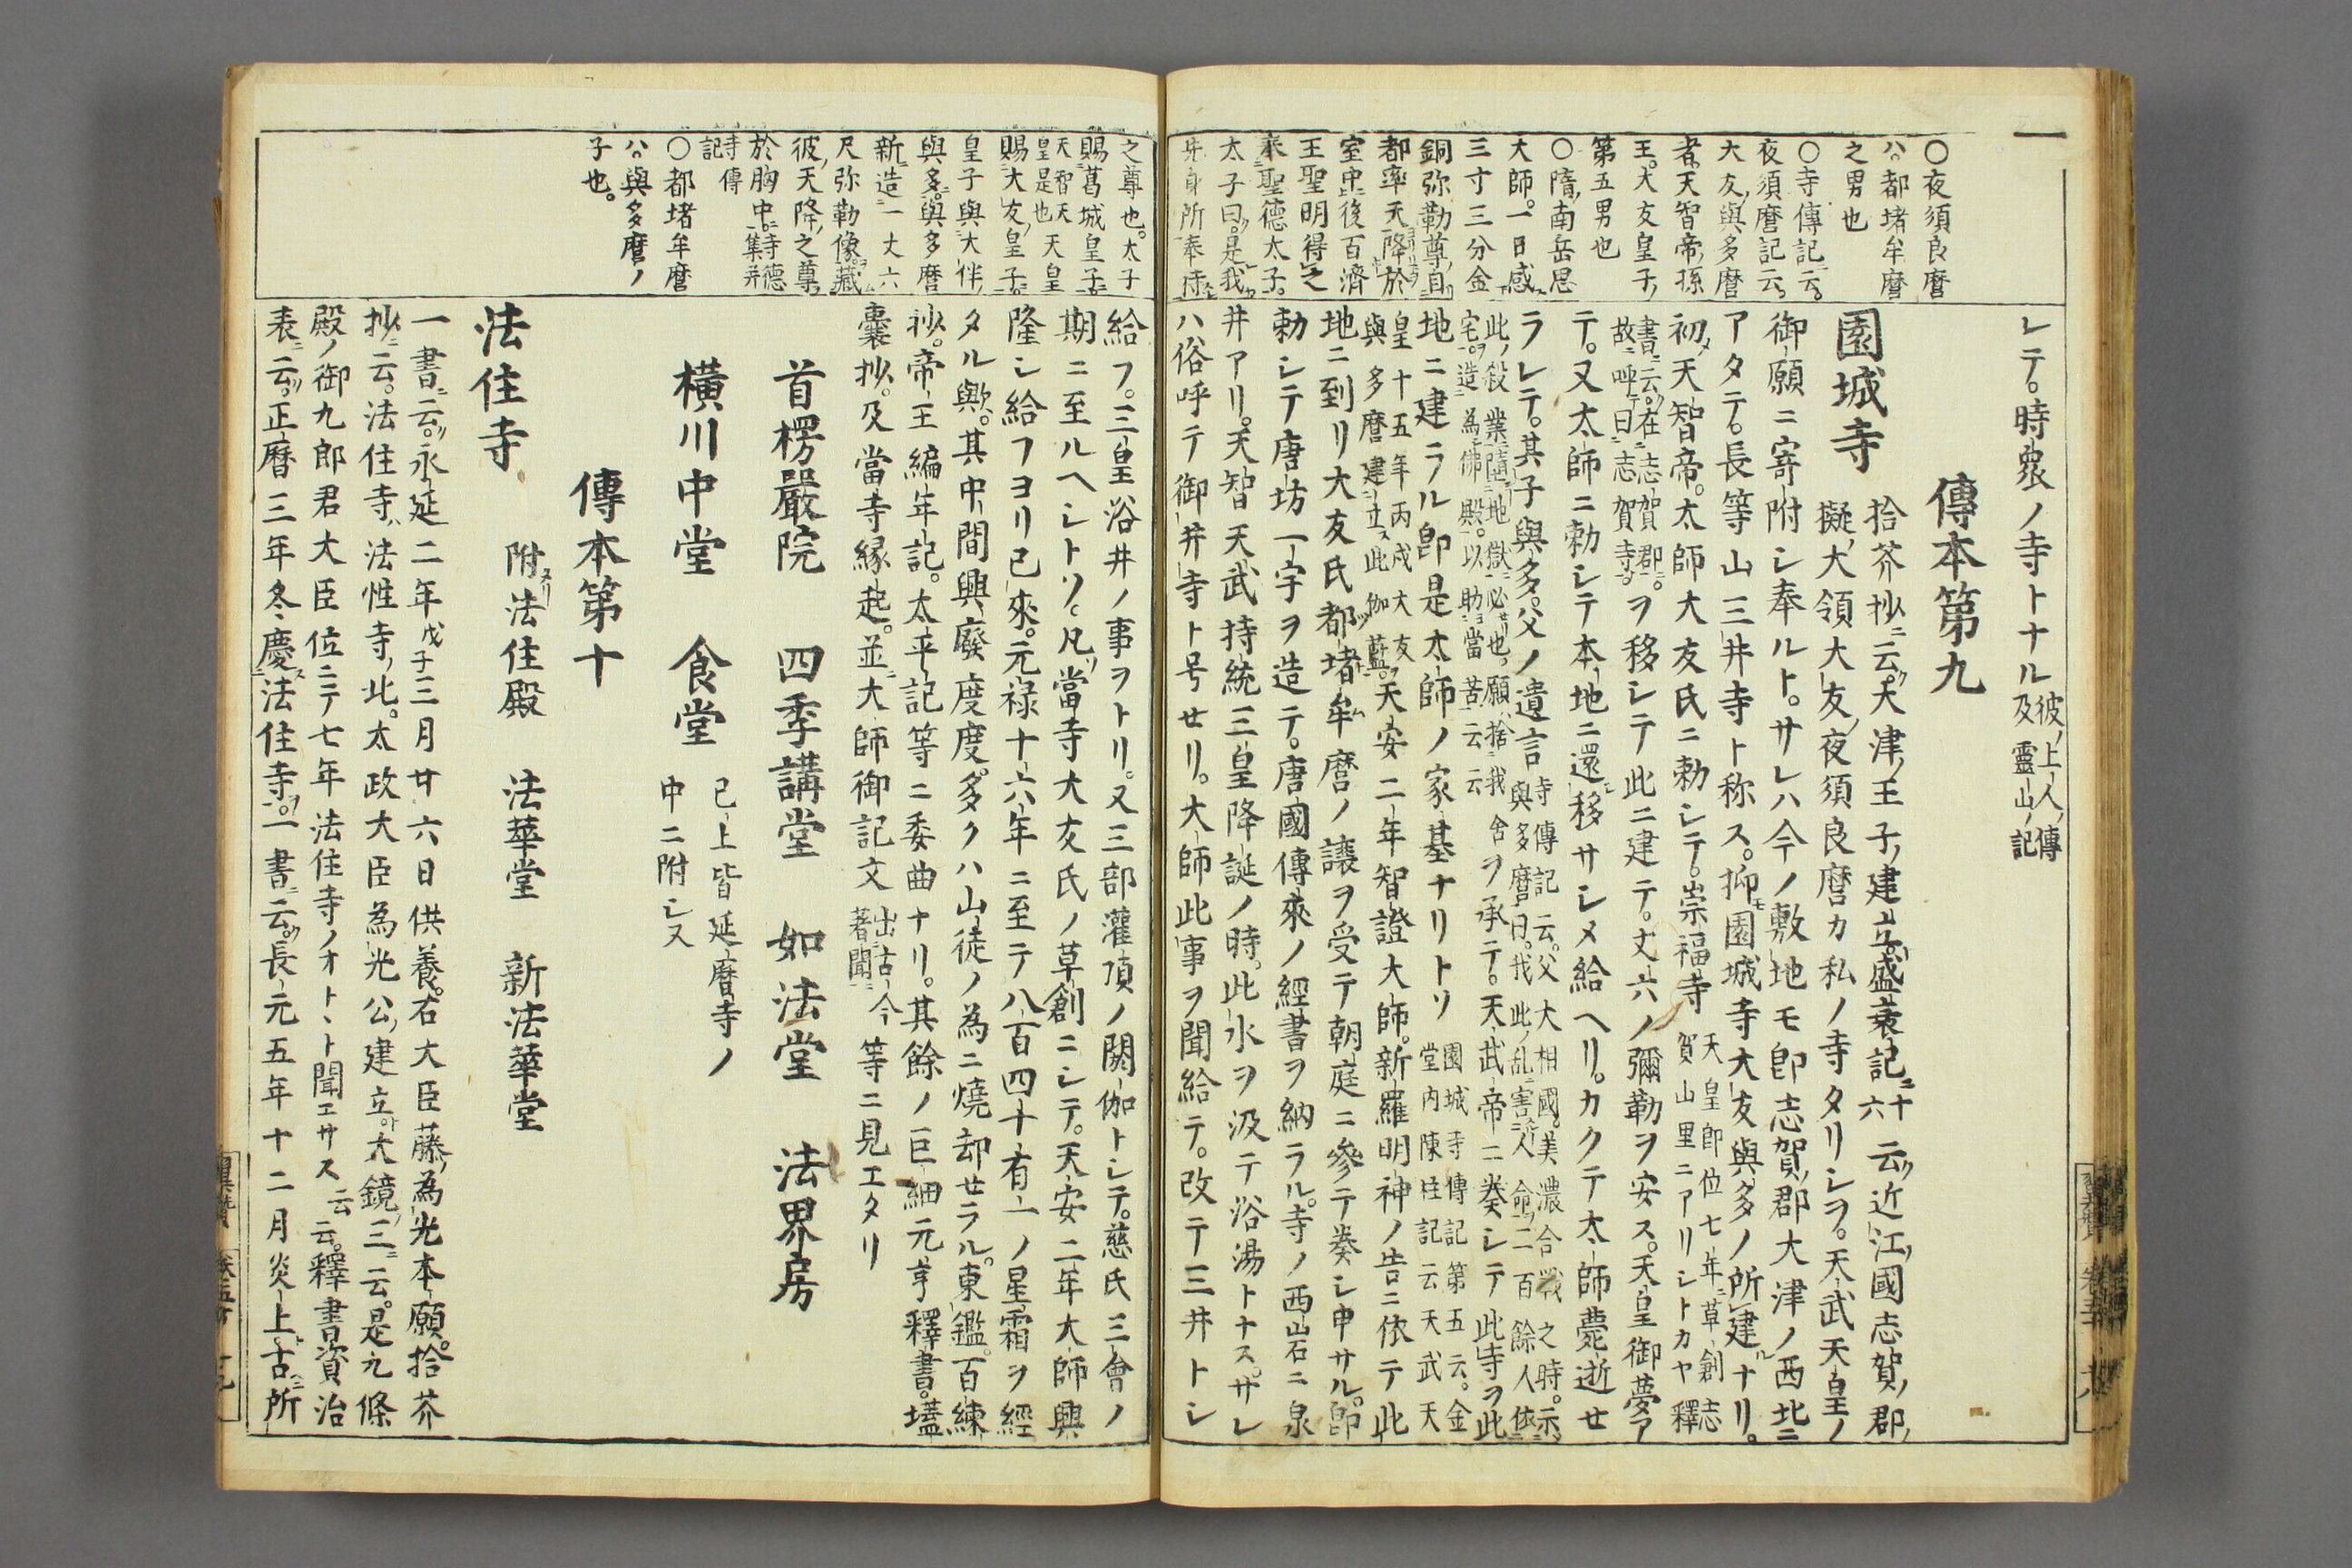 ○夜須良麿
ハ。都堵牟麿
之男也
○寺傳記云。
夜須麿記云。
大友與多麿
者。天智帝孫
王。大友皇子
第五男也
○隋南岳思
大師。一日感
三寸三分金
銅弥勒尊自
都率天降於
室中後百濟
王聖明得之
來聖德太子。
太子曰。是我
先身所奉持
レテ。時衆ノ寺トナル彼上人傳
及靈山ノ記
傳本第九
園城寺
拾芥抄ニ云。大津ノ王子ノ建立。盛衰記ニ十六云近江ノ國志賀ノ郡
擬大領大友夜須良麿カ私ノ寺タリシヲ。天武天皇ノ
御願ニ寄附シ奉ルト。サレハ今ノ敷地モ卽志賀郡大津ノ西北ニ
アタテ。長等山三井寺ト称ス。抑園城寺大友與多ノ所建ナリ。
初メ天智帝。太師大友氏ニ勅シテ。崇福寺天皇卽位七年草創志
賀山里ニアリシトカヤ釋
書ニ云。在志賀郡。
故呼曰志賀寺。ヲ移シテ此ニ建テ。丈六ノ彌勒ヲ安ス。天皇御夢ア
テ。又太師ニ勅シテ本ノ地ニ還移サシメ給ヘリ。カクテ太師薨逝セ
ラレテ。其子與多。父ノ遺言寺傳記云。父大相國。美濃合戰之時。示
與多麿曰。我此ノ乱ニ害人命二百餘人依
此ノ殺業隨地獄必也。願捨我舍
宅。造為佛殿。以助當苦云云ヲ承テ。天武帝ニ奏シテ此寺ヲ此
地ニ建ラル卽是太師ノ家基ナリトソ園城寺傳記第五云。金
堂内陳柱記云天武天
皇十五年丙戌大友
與多麿建立此伽藍天安二年智證大師。新羅明神ノ告ニ依テ此
地ニ到リ大友氏都堵牟麿ノ讓ヲ受テ朝庭ニ參テ奏シ申サル。卽
勅シテ唐坊一宇ヲ造テ。唐國傳來ノ經書ヲ納ラル。寺ノ西岩ニ泉
井アリ。天智天武持統三皇降誕ノ時。此水ヲ汲テ浴湯トナス。サレ
ハ俗呼テ御井寺ト号セリ。大師此事ヲ聞給テ。改テ三井トシ
之尊也。太子
賜葛城皇子
天智天
皇是也天皇
賜大友皇子。
皇子與大伴
與多。與多麿
新造一丈六
尺弥勒像。藏
彼天降之尊
於胸中。寺德
集并
寺傳
記
○都堵牟麿
ハ。與多麿ノ
子也。
給フ。三皇浴井ノ事ヲトリ。又三部灌頂ノ閼伽トシテ。慈氏三會ノ
期ニ至ルヘシトソ。凡當寺大友氏ノ草創ニシテ。天安二年大師興
隆シ給フヨリ已來。元禄十六年ニ至テ八百四十有一ノ星霜ヲ經
タル歟。其中間興廢度度。多クハ山徒ノ為ニ燒却セラル。東鑑。百練
抄。帝王編年記。太平記等ニ委曲ナリ。其餘ノ巨細元亨釋書。壒
囊抄。及當寺縁起。並大師御記文出古今
著聞等ニ見エタリ
首楞嚴院　四季講堂　如法堂　法界房
橫川中堂　食堂　已上皆延曆寺ノ
中ニ附シ又
傳本第十
法住寺　附法住殿　法華堂　新法華堂
一書云。永延二年戊子三月廿六日供養。右大臣藤為光本願。拾芥
抄ニ云。法住寺ハ法性寺ノ北。太政大臣為光公ノ建立。大鏡三云。是九條
殿ノ御九郎君大臣位ニテ七年法住寺ノオトヽト聞エサス云云。釋書資治
表云。正曆三年冬慶法住寺。一書云。長元五年十二月炎上。古所